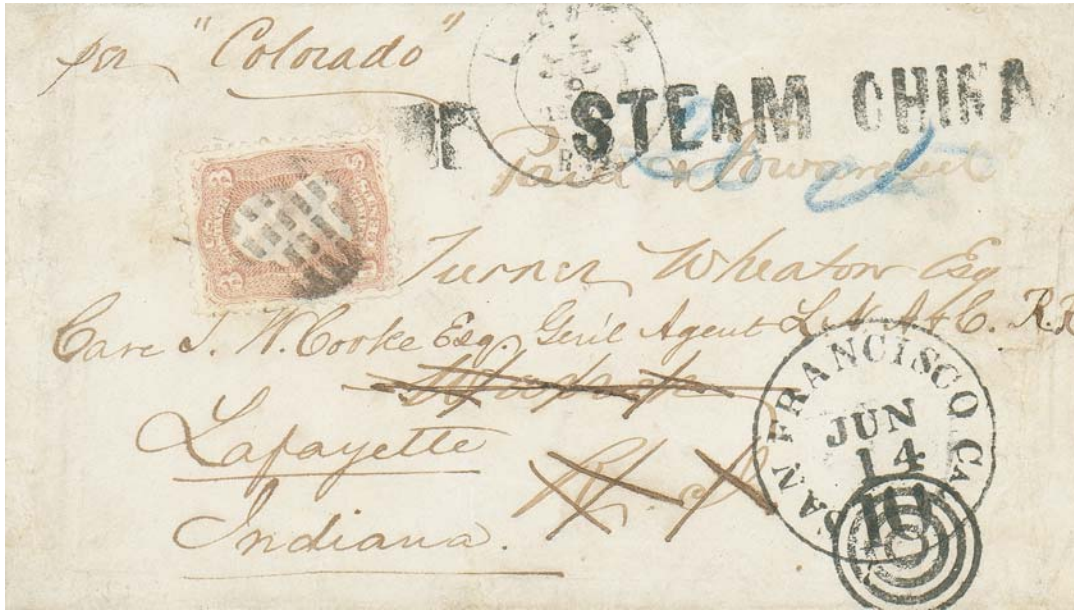 per "Colorado"
STEAM CHINA
Paid & Forwarded"
Turner Wheaton Esq
Care J. W. Cooke Esq. Gen'l Agent L. N. A & C. R.R
Lafayette
R. I.
Indiana.
3
3
SAN FRANCISCO CAL
JUN
14
10